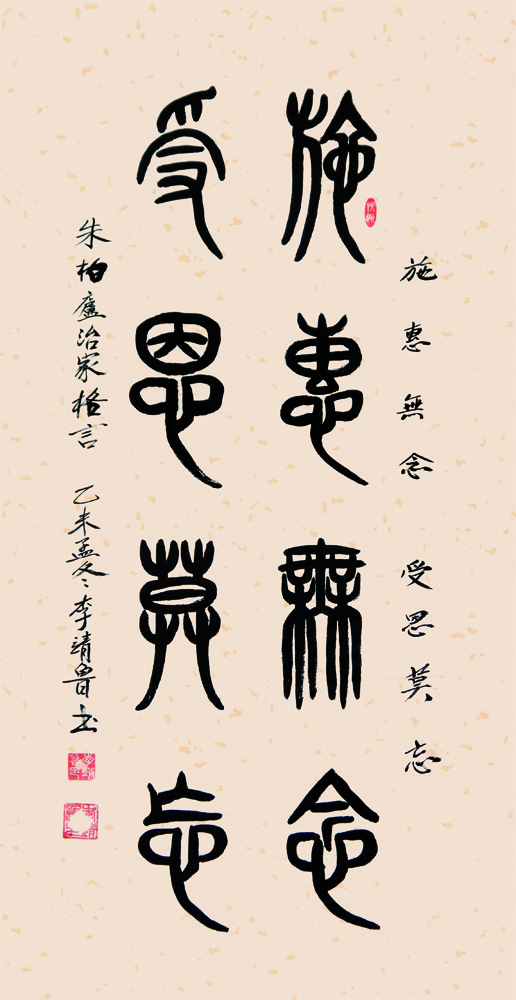 施惠無念 受恩莫忘
施惠無念
受恩莫忘
朱柏廬治家格言 乙未孟冬李靖魯书